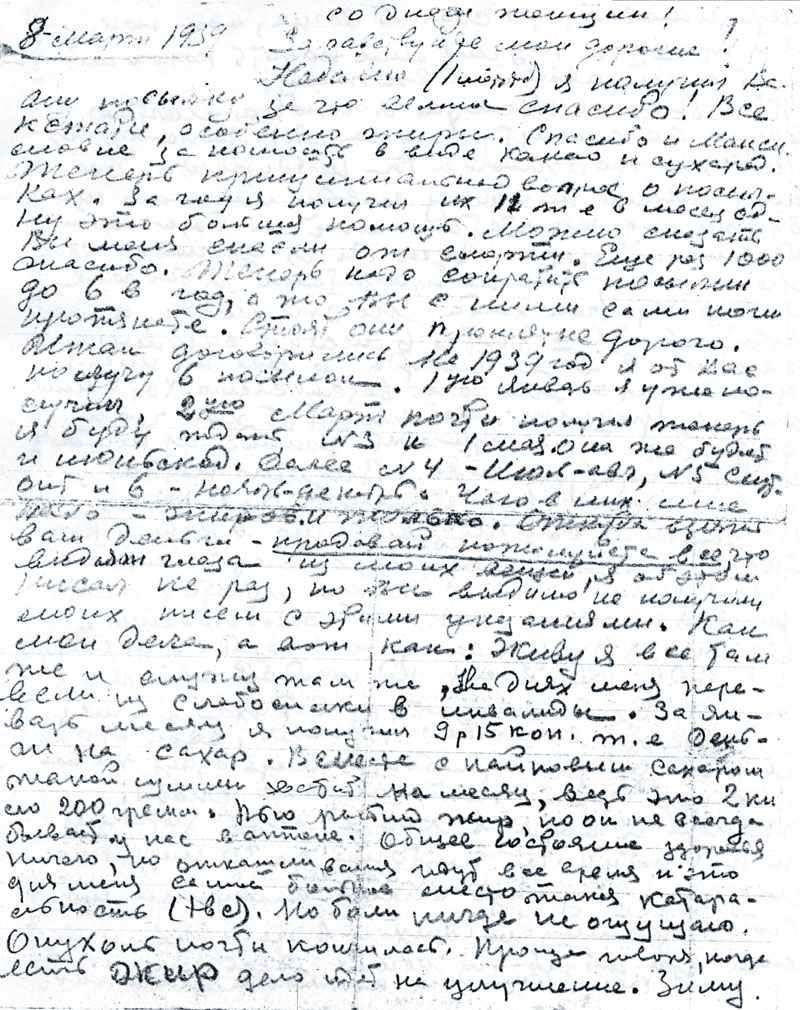 со Днем женщин!
8 Марта 1939 Здравствуйте мои дорогие!
Недавно я получил Ва-
шу посылку, за что весьма спасибо! Все
кстати, особенно жиры. Спасибо и Макси
за помощь в виде какао и сухарей.
Теперь принципиальный вопрос о посыл-
ках. За год я получил их 12 т е в месяц од-
ну это большая помощь. Можно сказать
Вы меня спасли от смерти. Еще раз 1000
спасибо. Теперь надо сократить посылки
до 6 в год, а то Вы с ними сами ноги
протянете. Стоят они проклятые дорого.
Итак договорились на 1939 год я от вас
получу 6 посылок. 1ую январь я уже по-
лучил, 2ую Март почти получил теперь
я буду ждать №3 к 1 мая. Она же будет
и июньской. Далее №4 - Июль-авг, №5 Сент-
окт и 6 - ноябрь-декабрь. Чего в них мне
надо - жиров и только. Откуда взять
вам деньги - продавай пожалуйста все, что
видят глаза из моих вещей, я об этом
писал не раз, но Вы видимо не получили
моих писем с этими указаниями. Как
мои дела, а вот как: Живу я все там
же и служу там же, на днях меня пере-
вели из слабосилки в инвалиды. За ян-
варь месяц я получил 9 р 15 коп. т. е день-
ги на сахар. Вместе с пайковым сахаром
такой суммы хватит на месяц, ведь это 2 ки
ло 200 грамм. Пью рыбий жир, но он не всегда
бывает у нас в аптеке. Общее состояние здоровья
ничего, но идут все время и это
для меня самое больное место такая катара-
льность (твс). Но боли нигде не ощущаю.
Опухоль почти кончилась. Проще говоря, когда
есть жир дело идет на улучшение. Зиму